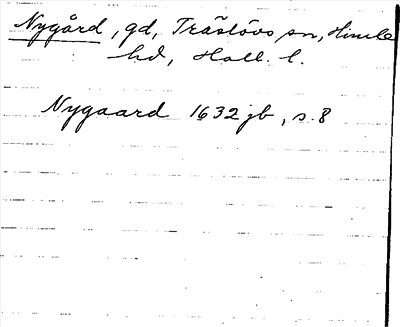 Nygård, gd, Träslövs sn, Himle
hd, Hall. l.
Nygaard 1632 jb, s. 8